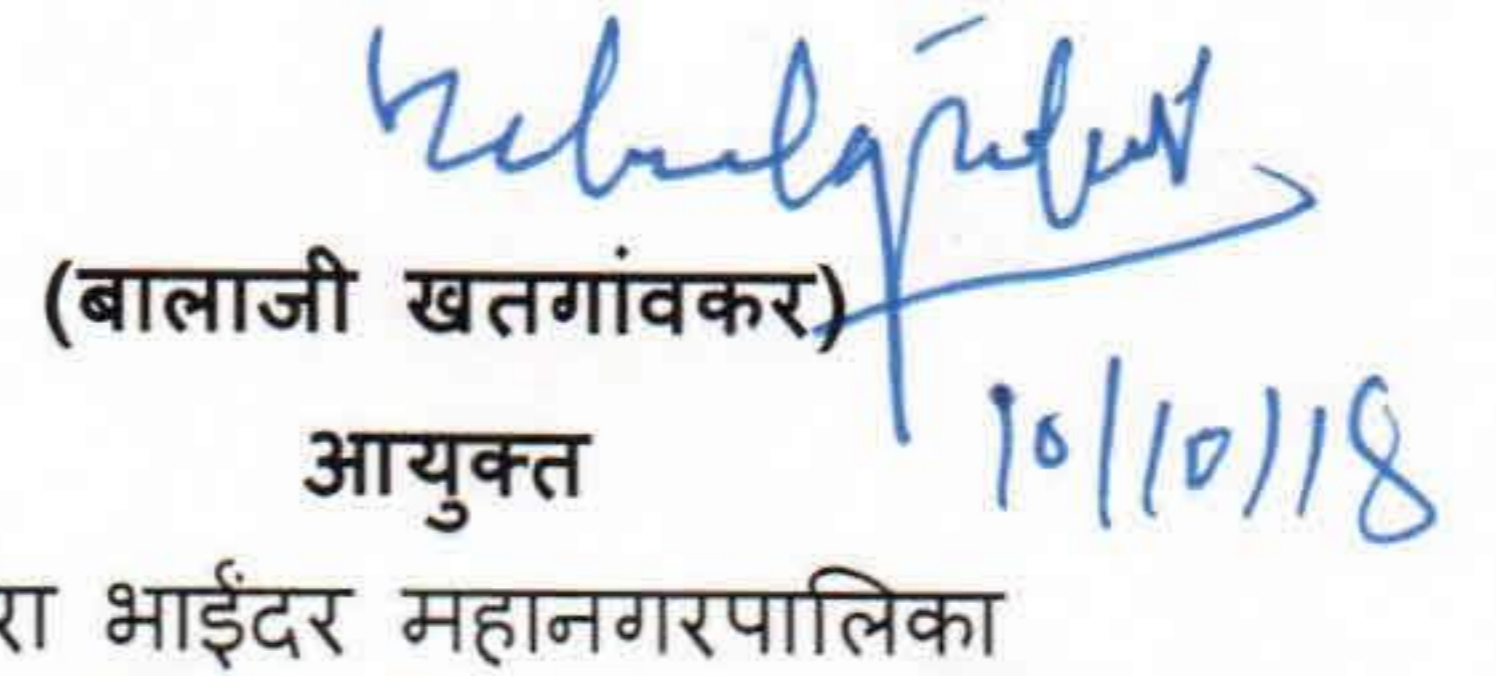 (बालाजी खतगांवकर)
10/10/18
आयुक्त
रा भाईंदर महानगरपालिका